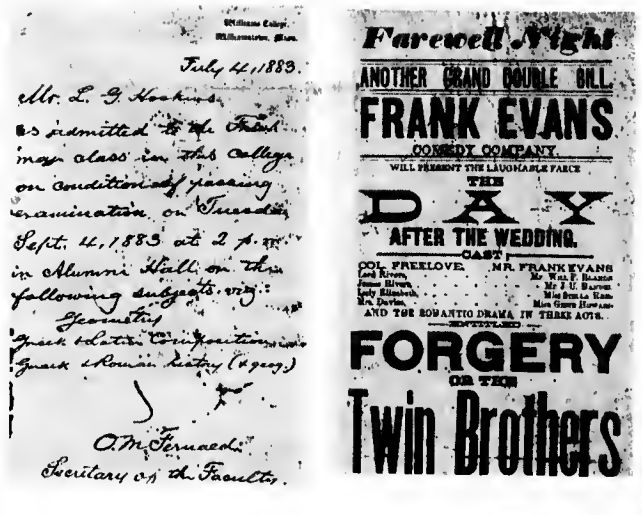 Williams College,
Williamstown, Mass.
July 4, 1883.
Mr. L. G. Hoskins
is admitted to the Fresh-
man class in this college
on condition of passing
examination on Tuesday
Sept. 4, 1883 at 2 p.m.
in Alumni Hall on the
following subjects viz:
Geometry
Greek & Latin Composition
Greek & Roman history (& geog.)
O. M. Fernald
Secretary of the Faculty.
Farewell Night
ANOTHER GRAND DOUBLE BILL.
FRANK EVANS
COMEDY COMPANY.
WILL PRESENT THE LAUGHABLE FARCE
THE
DAY
AFTER THE WEDDING.
CAST
COL. FREELOVE, MR. FRANK EVANS
Lord Rivers, Mr Will F.
James Rivers, Mr J. U.
Lady Elizabeth, Miss
Mrs. Davies, Miss Grace
AND THE ROMANTIC DRAMA, IN THREE ACTS,
ENTITLED
FORGERY
OR THE
Twin Brothers